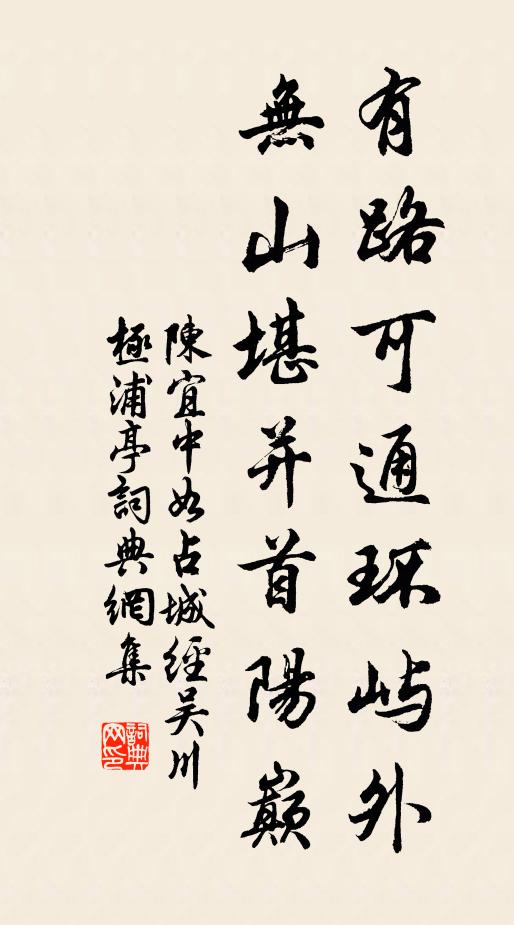 有路可通环屿外
無山堪并首陽巔
陳宜中如占城經吴川
極浦亭詞典網集
詞典
网印